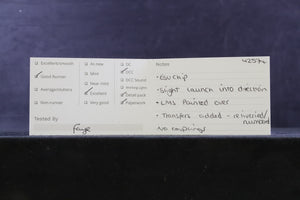 Excellent/smooth
Good Runner
Average/stutters
Non runner
Tested By
Faye
As new
Mint
Near mint
Excellent
Very good
DC
DCC
DCC Sound
Working Lights
Detail pack
Paperwork
Notes
• ESU chip
• Slight launch into direction
• LMS Painted over
• Transfers added - reliveried/
renumbered
No couplings